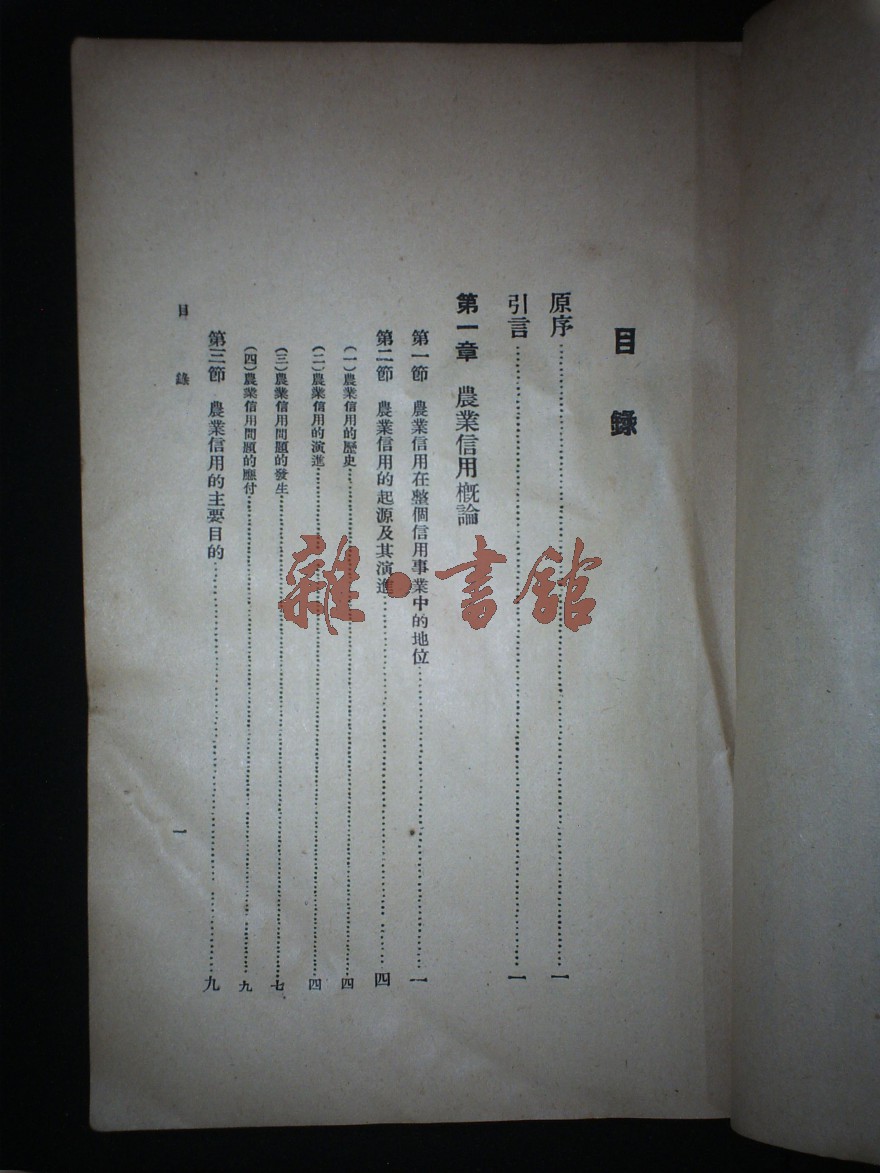 目錄
原序……一
引言……一
第一章 農業信用概論
第一節 農業信用在整個信用事業中的地位……一
第二節 農業信用的起源及其演進……四
(一)農業信用的歷史……四
(二)農業信用的演進……四
(三)農業信用問題的發生……七
(四)農業信用問題的應付……九
第三節 農業信用的主要目的……九
目錄 一
雜·書館